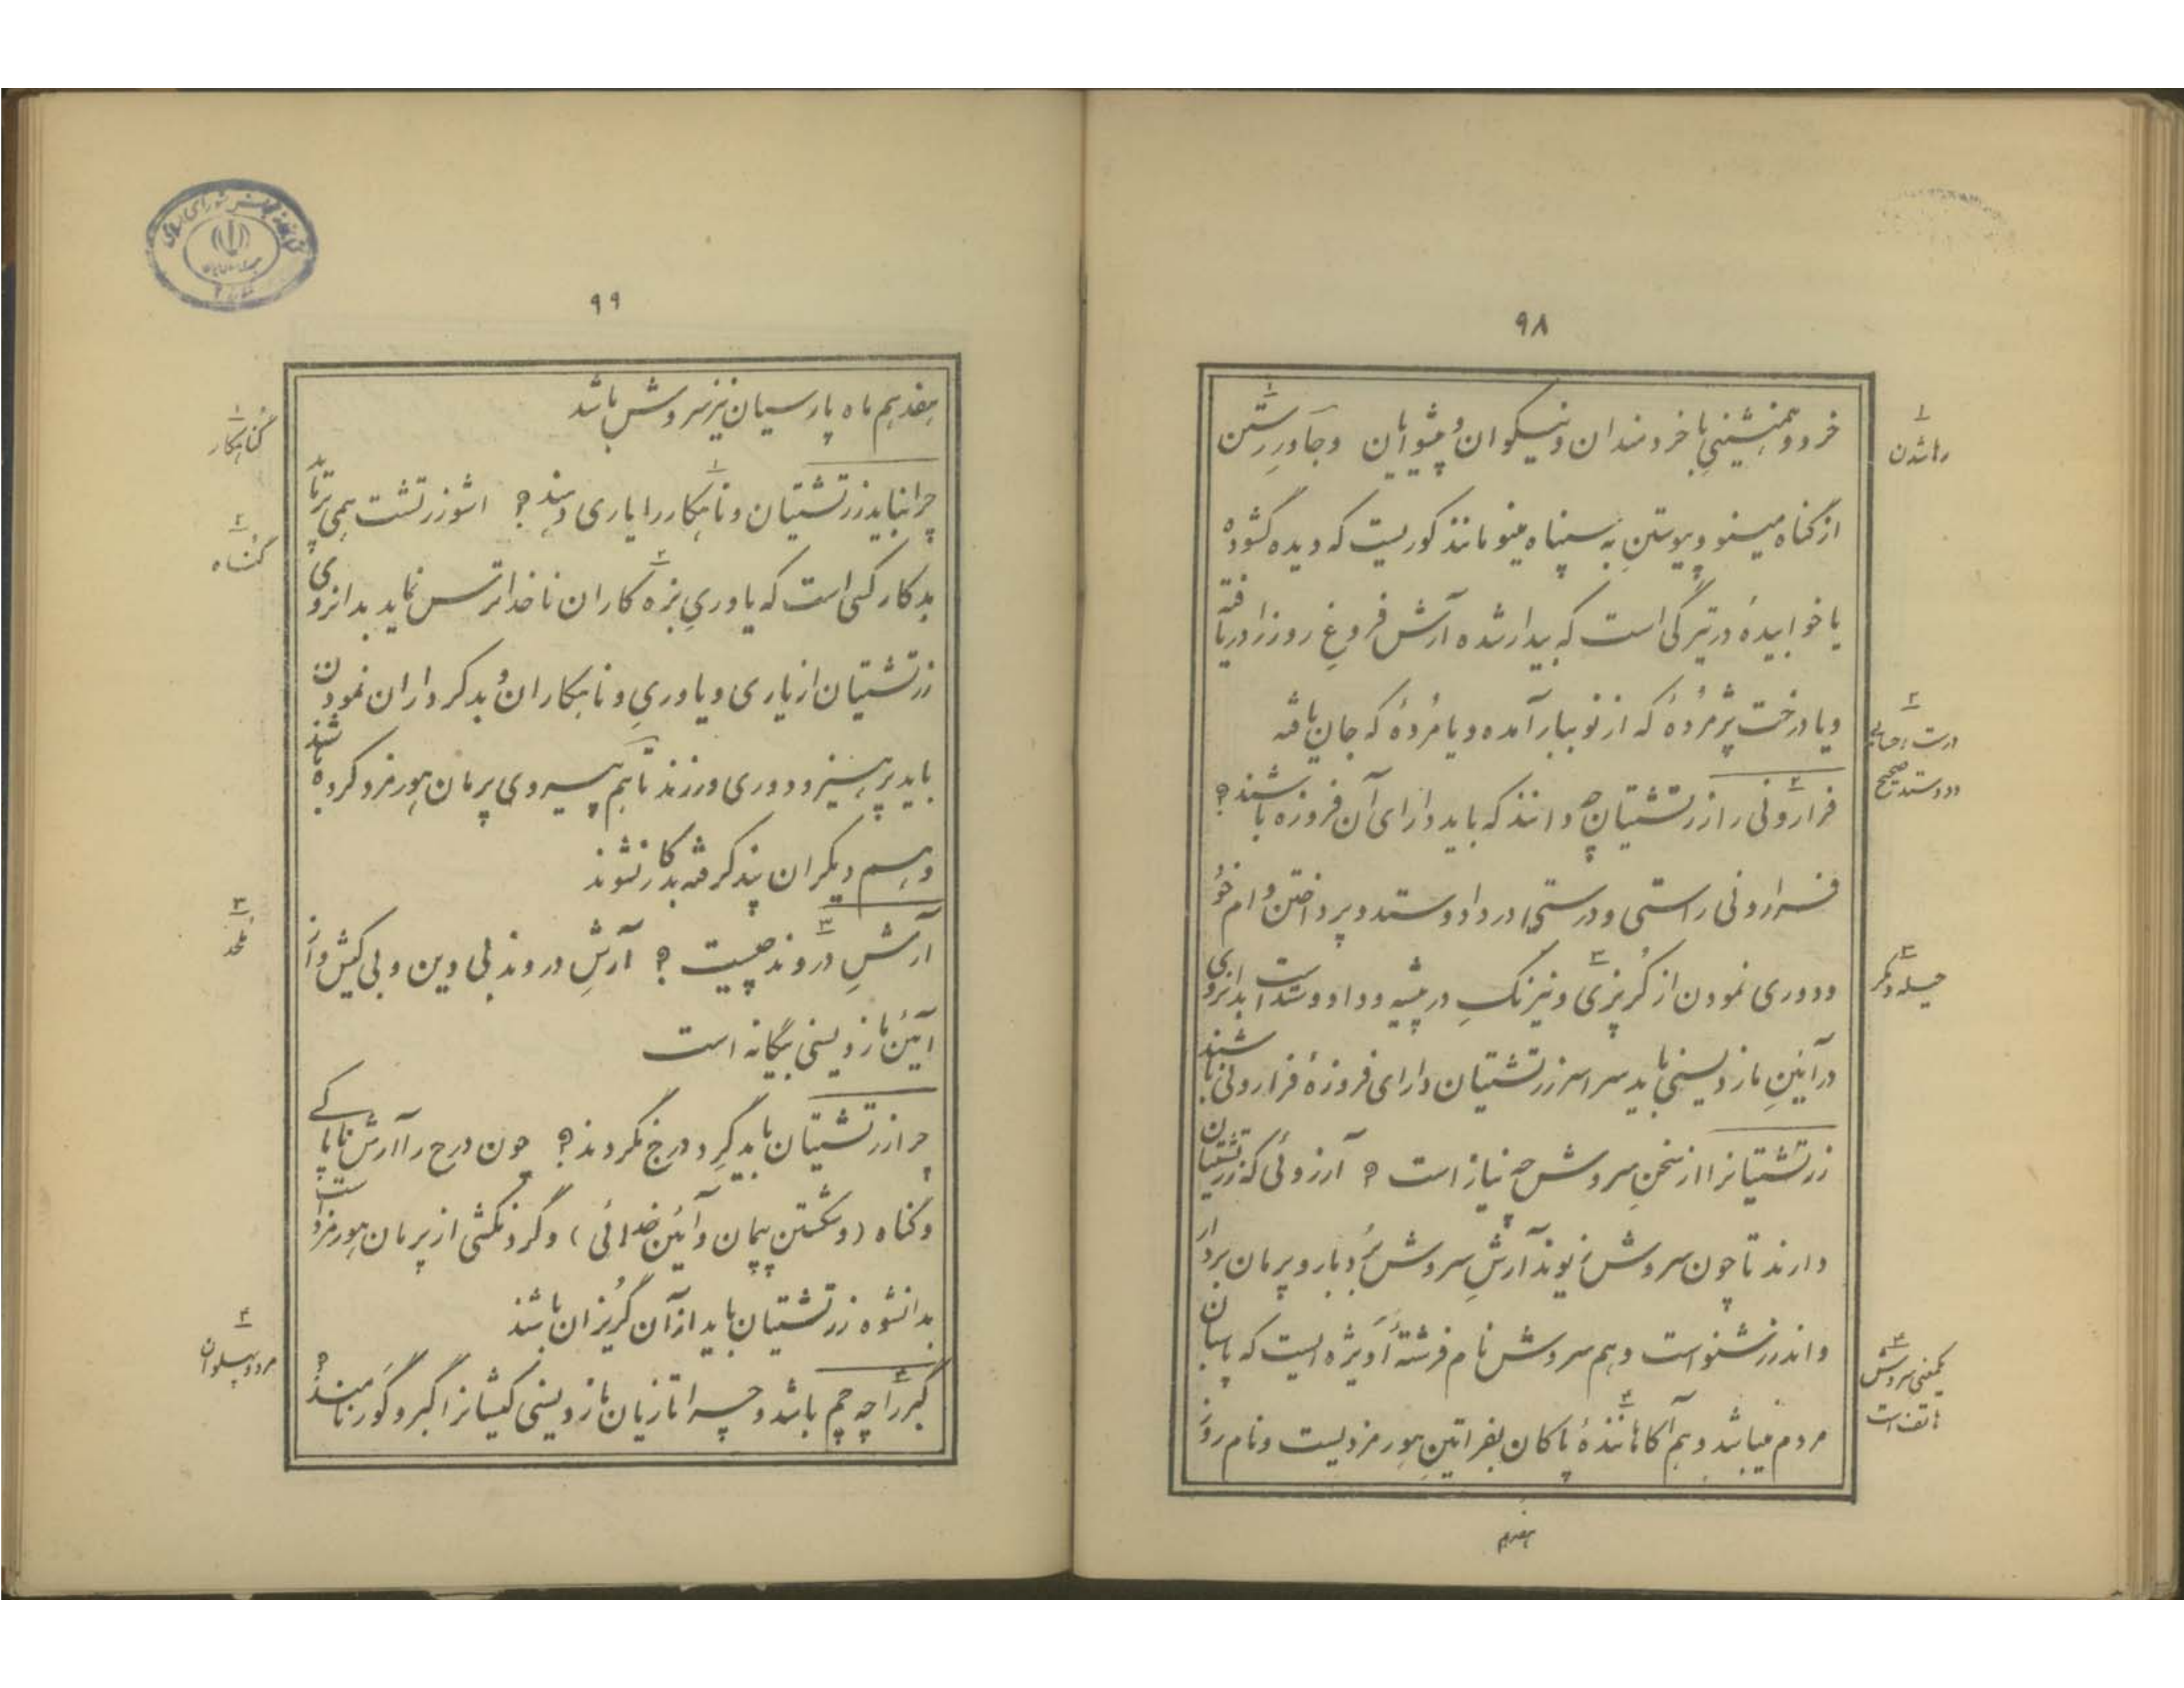 ۹۸
خرد و همنشینیِ با خردمندان و نیکوان و پیشوایان وجَاوَرِ رستن
از گناه مینو و پیوستنِ به سپناه مینو مانند کوریست که دیده گشوده
یا خوابیدهٔ در تیرگی است که بیدار شده آرش فروغِ روز را دریافته
و یا درخت پژمُردهٔ که از نو ببار آمده و یا مُردهٔ که جان یافته
فرارونی را زرتشتیان چه دانند که باید دارای آن فروزه باشند؟
فرارونی راستی و درستی در داد و ستد و پرداختن وام خود
و دوری نمودن از گُربُزی و نیرنگِ در پیشه و داد و ستد است بدانروی
در آئینِ مازدیسنی باید سراسر زرتشتیان دارای فروزهٔ فرارونی باشند
زرتشتیانرا از سخنِ سروش چه نیاز است؟ آرزوئی که زرتشتیان
دارند تا چون سروش زیوند آرشِ سروش بُردبار و پرمان بردار
و اندرز شنو است و هم سروش نام فرشتهٔ اَویژه ایست که پاسبان
مردم میباشد و هم آکاهانندهٔ پاکان بفراتینِ هورمزدیست و نام روز
هفدهم
۱
رها شدن
۲
درست حسابی
و دادوستد صحیح
۳
حیله و مکر
۴
یکمعنی سروش
هاتف است
۹۹
هفدهم ماه پارسیان نیز سروش باشد
چرا نباید زرتشتیان وناهکار را یاری دهند؟ اشو زرتشت همی پرماید
بدکار کسی است که یاوریِ بزه کاران ناخداترس نماید بدانروی
زرتشتیان از یاری و یاوریِ وناهکاران و بدکرداران نمودن
باید پرهیز و دوری ورزند تا هم پیروی پرمان هورمزد کرده باشند
و هم دیگران پند گرفته بدکار نشوند
آرشِ دروند چیست؟ آرشِ دروند بی دین و بی کیش و از
آئین مازدیسنی بیگانه است
چرا زرتشتیان باید گِردِ درج نگردند؟ چون درج را آرش ناپاکے
و گناه (و شکستن پیمان و آئین خدائی) و گردنکشی از پرمان هورمزد است
بدانشوه زرتشتیان باید از آن گُریزان باشند
گبر را چه چم باشد و چرا تازیان مازدیسنی کیشانرا گبر و گَور نامند؟
۱
گناهکار
۲
گناه
۳
ملحد
۴
مرد پهلوان